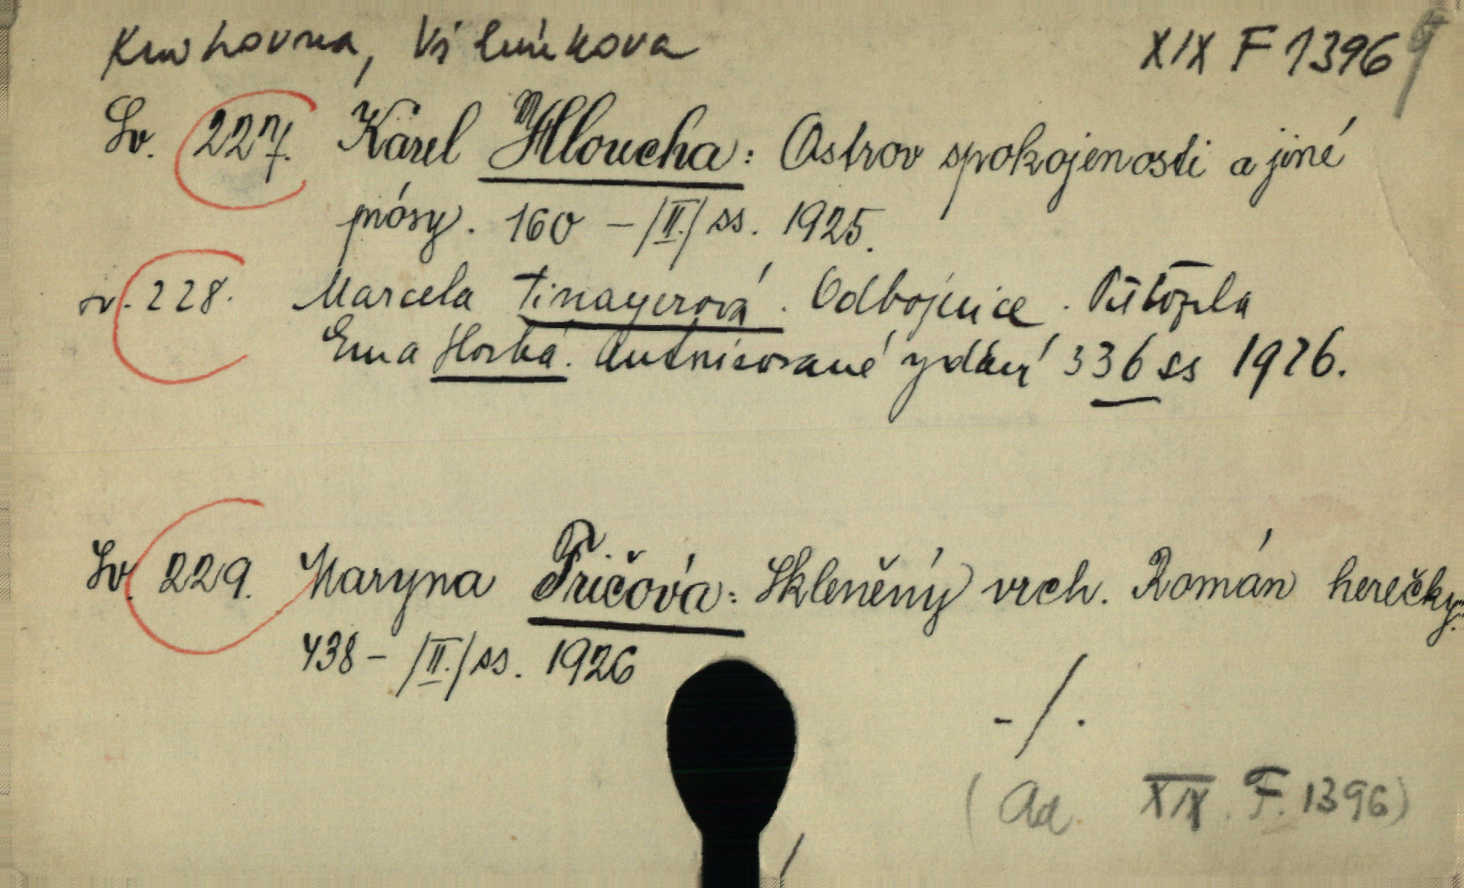 Knihovna, Vilímkova XIX F 1396
Sv. 227. Karel Hloucha: Ostrov spokojenosti a jiné
prósy. 160 – /II./ ss. 1925.
sv. 228. Marcela Tinayerová. Odbojnice. Přeložila
Ema Horká. Autorisované vydání 336 ss 1926.
Sv. 229. Maryna Fričová: Skleněný vrch. Román herečky.
438 – /II./ ss. 1926
-/.
(Ad. XIX. F. 1396)